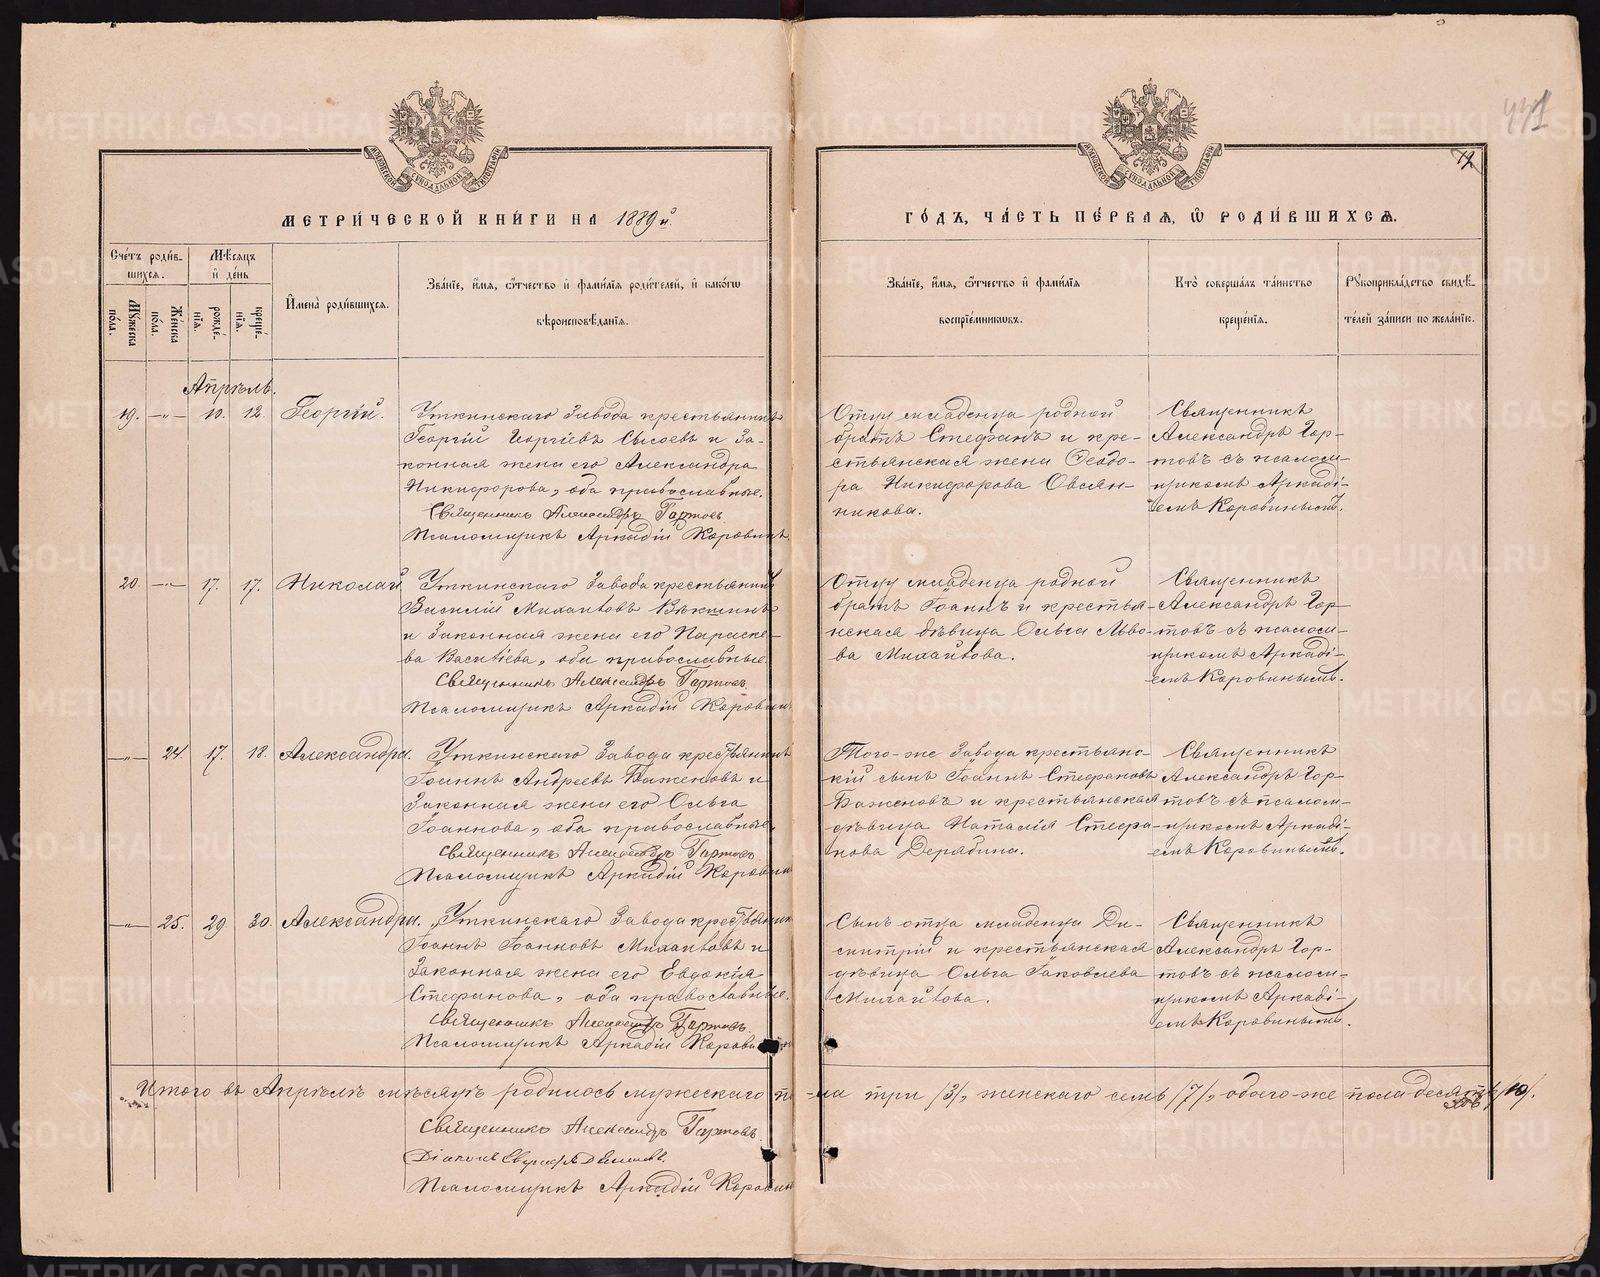 МЕТРИ́ЧЕСКОЙ КНИ́ГИ НА 1889й
ГО́ДЪ, ЧА́СТЬ ПЕ́РВАЯ, Ѡ РОДИ́ВШИХСЯ.
431
12
Сче́тъ роди́в-шихся.
Мѣ́сяцъ и де́нь
Имена̀ роди́вшихся.
Зва́нїе, и́мя, ѻ́тчество и фами́лїя роди́телей, и како́гѡ
вѣроисповѣ́данїя.
Зва́нїе, и́мя, ѻ́тчество и фами́лїя
воспрїе́мниковъ.
Кто̀ соверша́лъ та́инство
креще́нїя.
Рꙋкоприкла́дство свидѣ́-
телей за́писи по жела́нїю.
Мꙋ́жеска по́ла.
Же́нска по́ла.
рожде́-нїя.
креще́-нїя.
Апрѣль.
19. —"— 10. 12. Георгій.
Уткинскаго Завода крестьянинъ
Георгій Георгіевъ Сысоевъ и за-
конная жена его Александра
Никифорова, оба православные.
Священникъ Александръ Гортовъ
Псаломщикъ Аркадій Коровинъ.
Отцу младенца родной
братъ Стефанъ и кре-
стьянская жена Ѳеодо-
ра Никифорова Овсян-
никова.
Священникъ
Александръ Гор-
товъ съ псалом-
щикомъ Аркаді-
емъ Коровинымъ.
20. —"— 17. 17. Николай
Уткинскаго Завода крестьянинъ
Василій Михайловъ Вѣкшинъ
и законная жена его Параске-
ва Васильева, оба православные.
Священникъ Александръ Гортовъ
Псаломщикъ Аркадій Коровинъ
Отцу младенца родной
братъ Іоаннъ и крестья-
нская дѣвица Ольга Льво-
ва Михайлова.
Священникъ
Александръ Гор-
товъ съ псалом-
щикомъ Аркаді-
емъ Коровинымъ.
—"— 24. 17. 18. Александра.
Уткинскаго Завода крестьянинъ
Іоаннъ Андреевъ Баженовъ и
законная жена его Ольга
Іоаннова, оба православные.
Священникъ Александръ Гортовъ
Псаломщикъ Аркадій Коровинъ
Того-же Завода крестьянс-
кій сынъ Іоаннъ Стефановъ
Баженовъ и крестьянская
дѣвица Наталія Стефа-
нова Дерябина.
Священникъ
Александръ Гор-
товъ съ псалом-
щикомъ Аркаді-
емъ Коровинымъ.
—"— 25. 29. 30. Александра.
Уткинскаго Завода крестьянинъ
Іоаннъ Іоанновъ Михайловъ и
законная жена его Евдокія
Стефанова, оба православные.
Священникъ Александръ Гортовъ
Псаломщикъ Аркадій Коровинъ
Сынъ отца младенца Ди-
митрій и крестьянская
дѣвица Ольга Іаковлева
Михайлова.
Священникъ
Александръ Гор-
товъ съ псалом-
щикомъ Аркаді-
емъ Коровинымъ.
Итого въ Апрѣлѣ мѣсяцѣ родилось мужескаго по-ла три /3/, женскаго семь /7/, обоего-же пола десять /10/.
Священникъ Александръ Гортовъ.
Діаконъ
Псаломщикъ Аркадій Коровинъ
METRIKI.GASO-URAL.RU